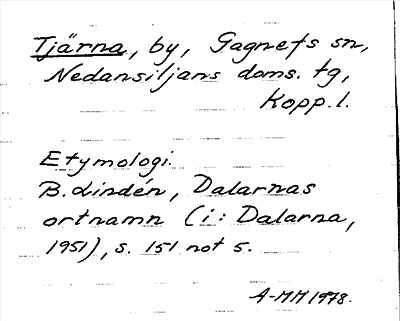 Tjärna, by, Gagnefs sn,
Nedansiljans doms. tg,
Kopp. l.
Etymologi.
B. Lindén, Dalarnas
ortnamn (i: Dalarna,
1951), s. 151 not 5.
A-MM 1978.